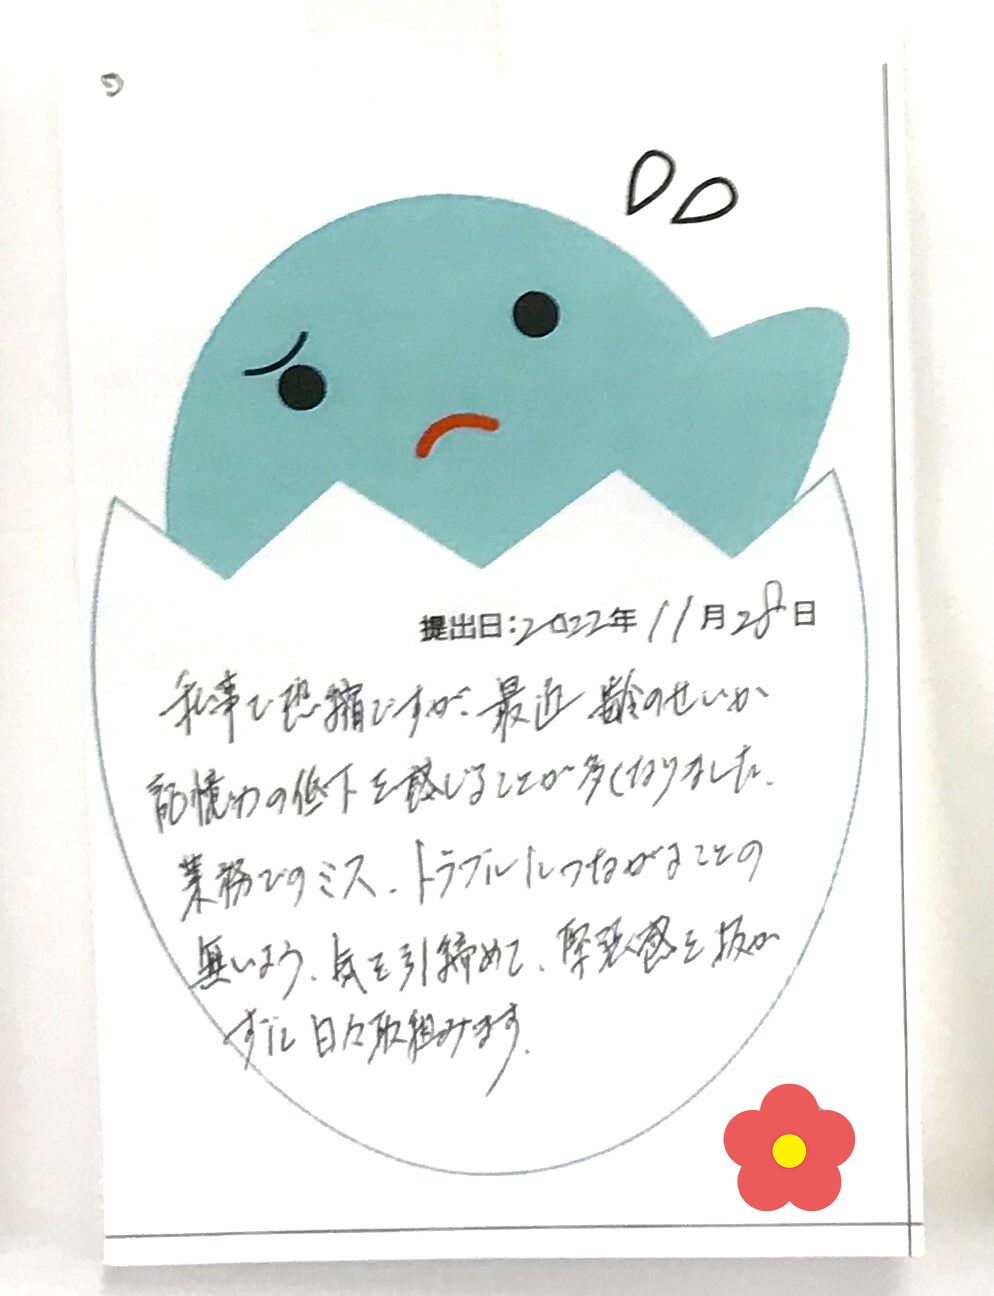 提出日:2022年11月28日
私事で恐縮ですが、最近齢のせいか
記憶力の低下を感じることが多くなりました。
業務でのミス、トラブルにつながることの
無いよう、気を引締めて、緊張感を抜か
ずに日々取組みます。